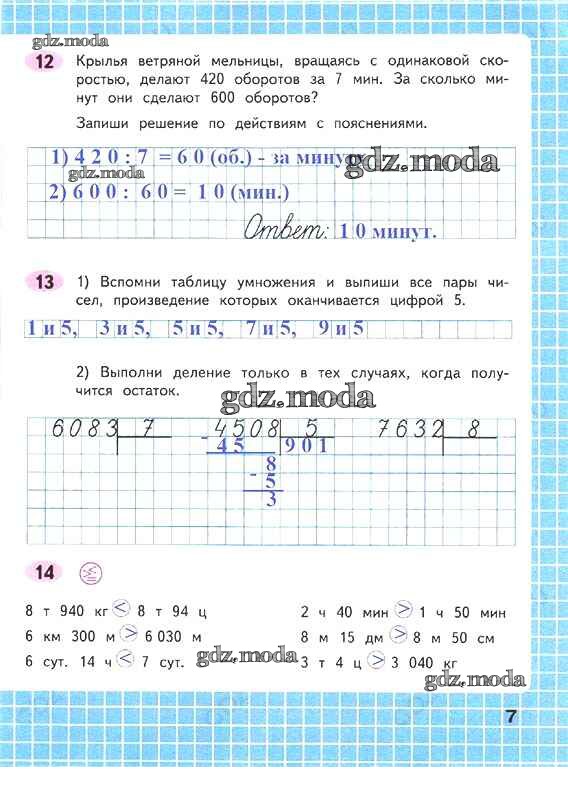 gdz.moda
12 Крылья ветряной мельницы, вращаясь с одинаковой ско-
ростью, делают 420 оборотов за 7 мин. За сколько ми-
нут они сделают 600 оборотов?
Запиши решение по действиям с пояснениями.
1) 420 : 7 = 60 (об.) - за минуту
gdz.moda
gdz.moda
2) 600 : 60 = 10 (мин.)
Ответ: 10 минут.
13 1) Вспомни таблицу умножения и выпиши все пары чи-
сел, произведение которых оканчивается цифрой 5.
1 и 5, 3 и 5, 5 и 5, 7 и 5, 9 и 5
2) Выполни деление только в тех случаях, когда полу-
чится остаток.
gdz.moda
6083 7 4508 5 7632 8
- 45 901
8
- 5
3
14 > < =
8 т 940 кг < 8 т 94 ц 2 ч 40 мин > 1 ч 50 мин
6 км 300 м > 6 030 м 8 м 15 дм > 8 м 50 см
6 сут. 14 ч < 7 сут. 3 т 4 ц > 3 040 кг
gdz.moda
gdz.moda
7